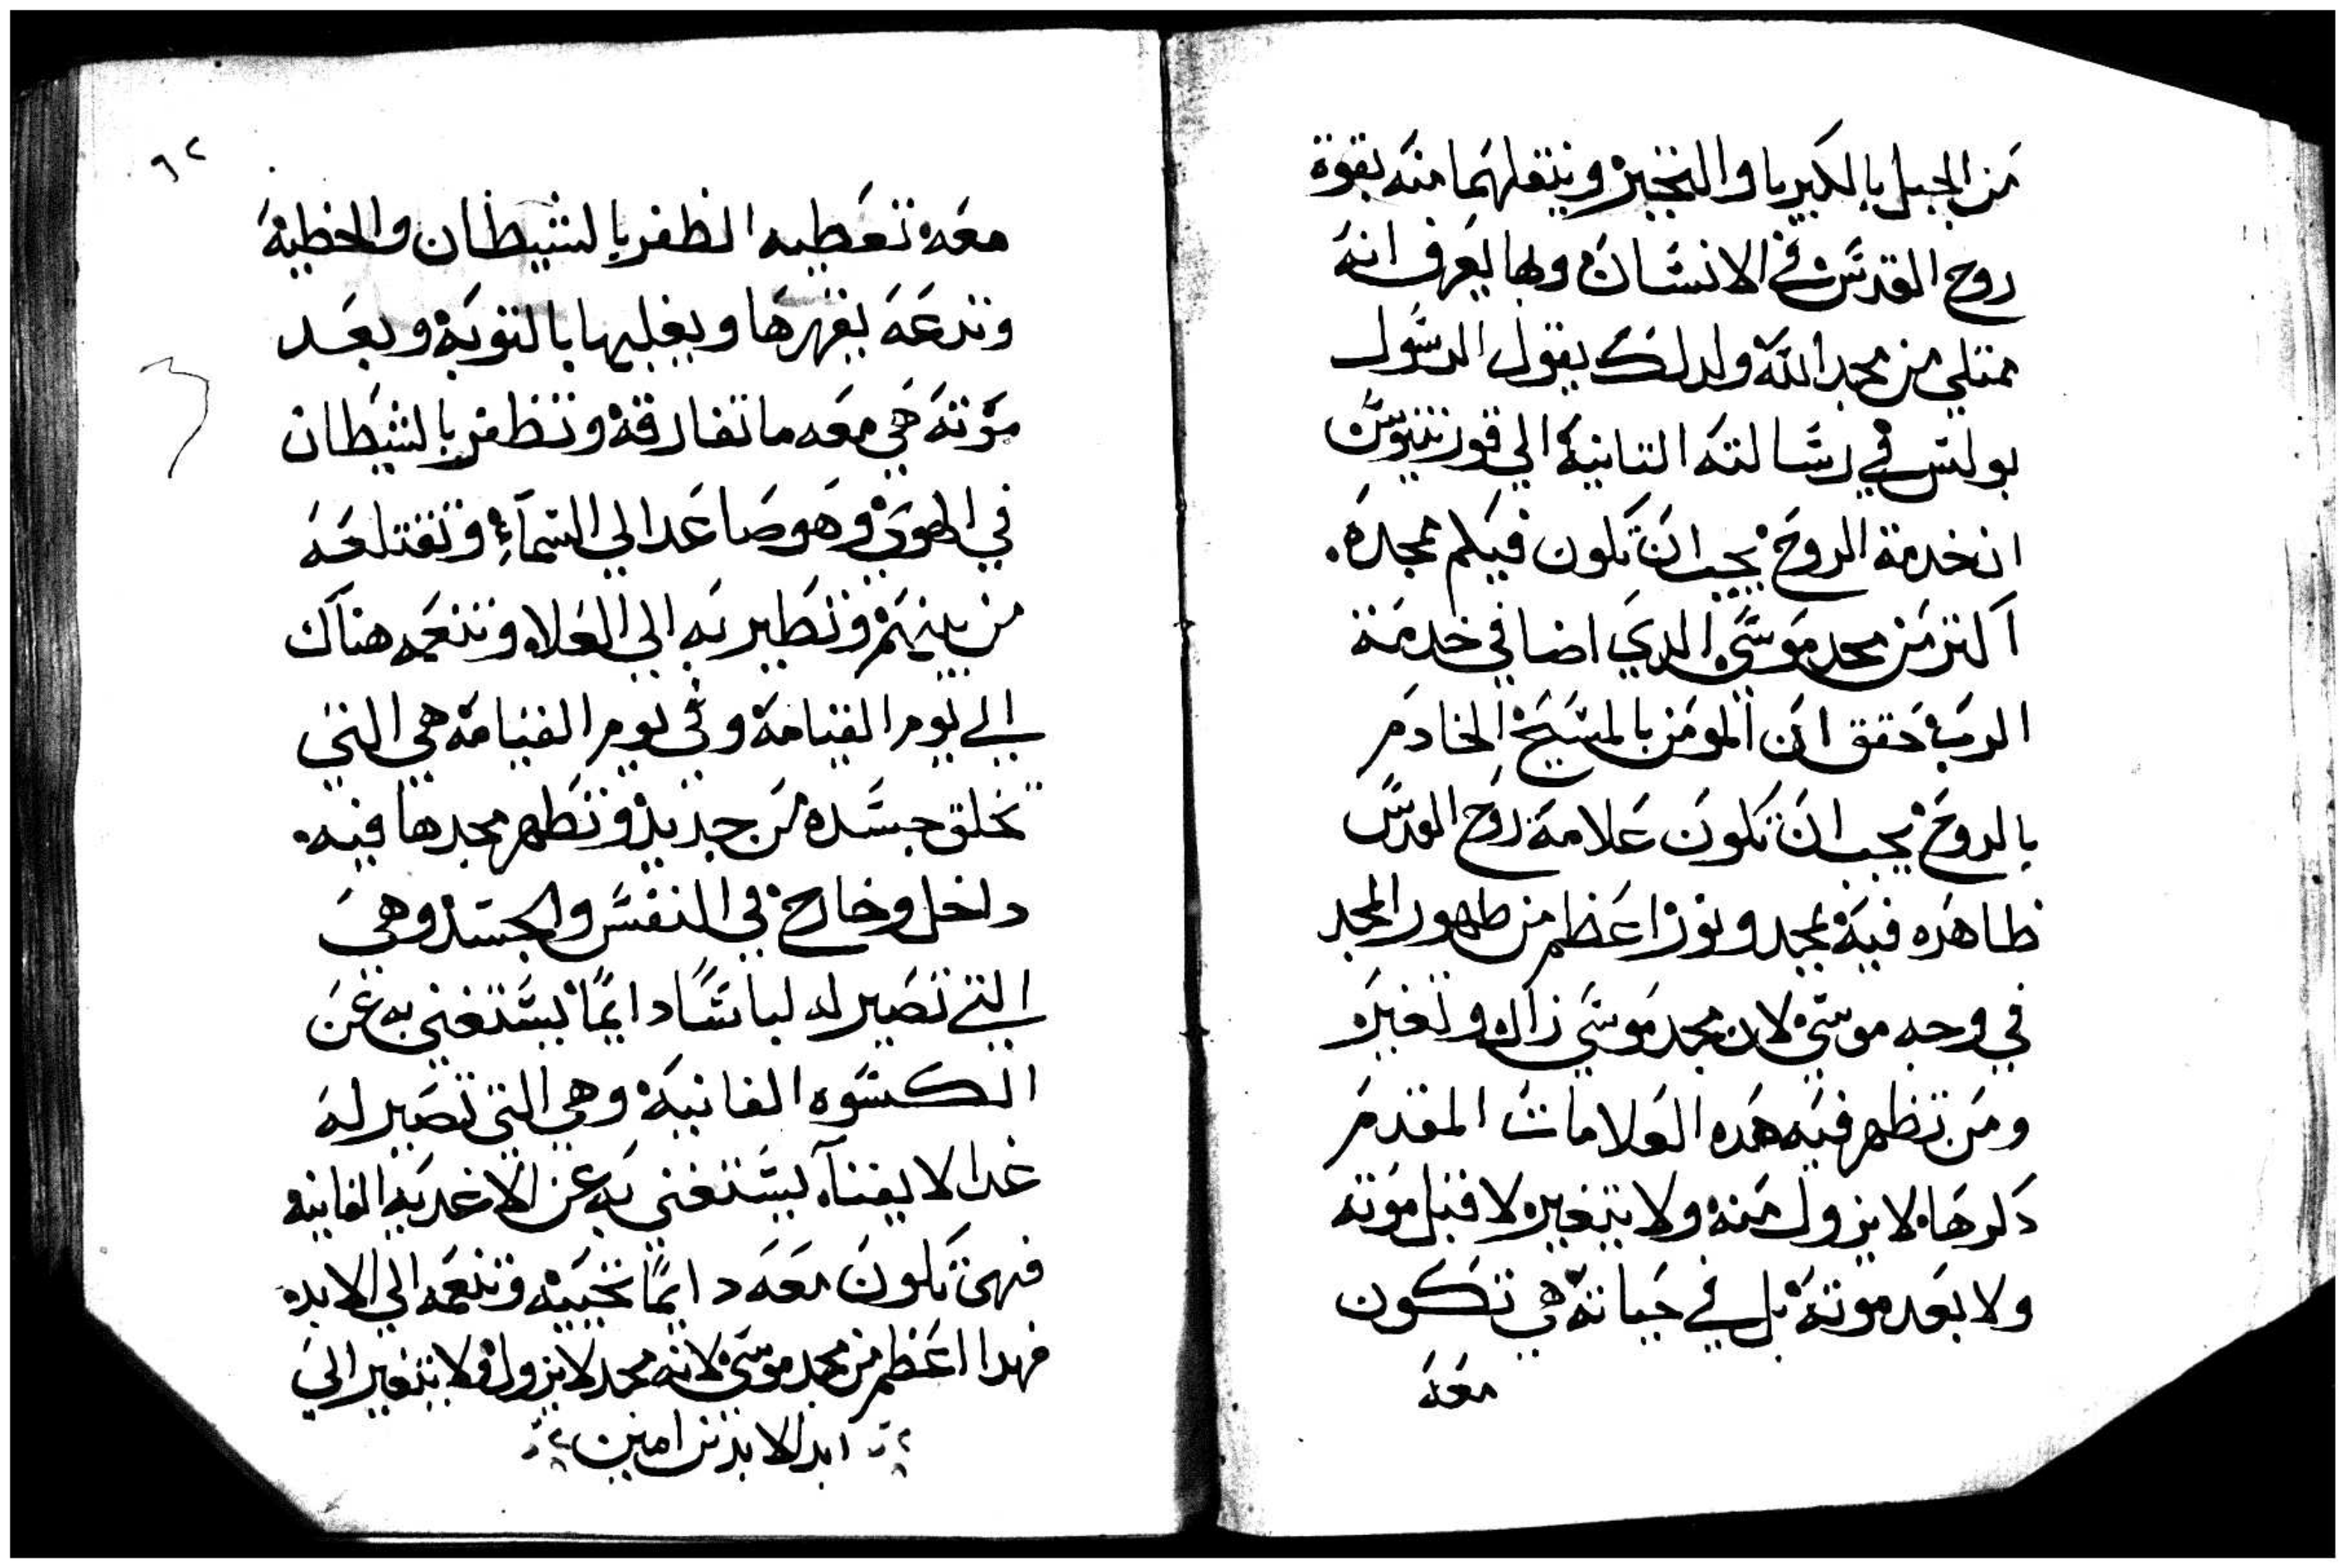 من الجبل بالكبريا والتجبر وينقلهما منه بقوة
روح القدس في الانسان وبها يعرف انه
ممتلي من مجد الله ولدلك يقول الرسول
بولس في رسالته التانية الي قورنتيوس
ان خدمة الروح يجب ان تكون فيكم ممجده.
اكتر من مجد موسي الدي اضا في خدمة
الرب حقق ان المومن بالمسيح الخادم
بالروح يجب ان تكون علامة روح القدس
ظاهره فيه بمجد ونور اعظم من ظهور المجد
في وجه موسي لان مجد موسي زال وتغير
ومن تظهر فيه هده العلامات المقدم
دكرها لا يزول منه ولا يتغير لا قبل موته
ولا بعد موته بل في حياته هي تكون
معه
٦٢
معه تعطيه الظفر بالشيطان والخطية
وتدعه يقهرها ويغلبها بالتوبة وبعد
موته هي معه ما تفارقه وتظفر بالشيطان
في الهوي وهو صاعد الي السماء وتقتلعه
من بينهم وتطير به الي العلاه وتنعمه هناك
الي يوم القيامة وفي يوم القيامة هي التي
تخلق جسده من جديد وتظهر مجدها فيه.
داخل وخارج في النفس والجسد وهي
التي تصير له لباسًا دايمًا يستغني به عن
الكسوه الفانية وهي التي تصير له
غدا لا يفنا يستغني به عن الاغدية الفانيه
فهي تكون معه دايمًا تحييه وتنعمه الي الابد
فهدا اعظم من مجد موسي لانه مجد لا يزول ولا يتغير الي
ابد الابدين امين